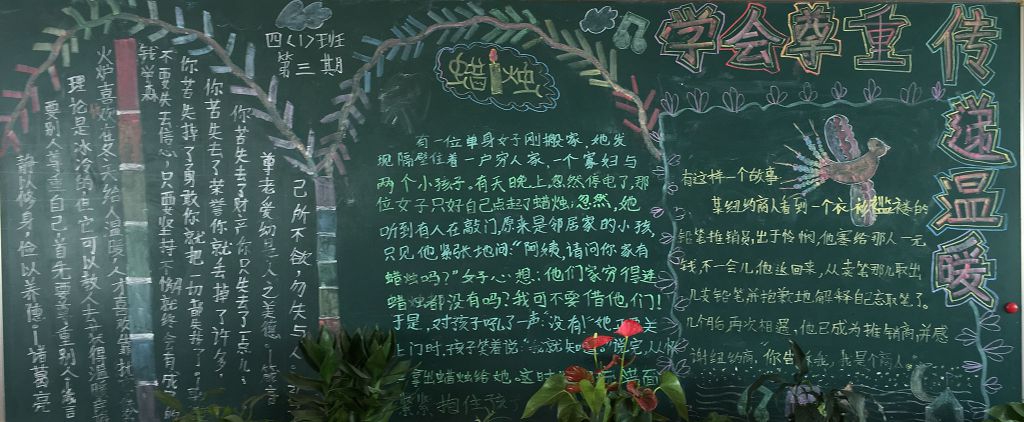 学会尊重 传递温暖
四(1)班班
第三期
静以修身,俭以养德!—诸葛亮
要别人尊重自己,首先要尊重别人—
理论是冰冷的,但它可以教人去获得温暖
火炉喜欢在冬天给人温暖,人才喜欢靠近
钱学森
不要失去信心,只要坚持不懈就终会有成
你若失掉了勇敢你就把一切都失掉了
你若失去了荣誉你就去掉了许多
你若失去了财产你只失去了一点儿
尊老爱幼是人之美德!—
己所不欲,勿失与人
有一位单身女子刚搬家,她发
现隔壁住着一户穷人家,一个寡妇与
两个小孩子。有天晚上,忽然停电了,那
位女子只好自己点起了蜡烛,忽然,她
听到有人在敲门,原来是邻居家的小孩,
只见他紧张地问:"阿姨,请问你家有
蜡烛吗?"女子心想:他们家穷得连
蜡烛都没有吗?我可不要借他们!
于是,对孩子吼了声:"没有!"她正要关
上门时,孩子笑着说:
拿出蜡烛给她。这时
紧紧抱住孩
有这样一个故事
某纽约商人看到一个衣衫褴褛的
铅笔推销员,出于怜悯,他塞给那人一元
钱,不一会儿,他返回来,从卖笔那儿取出
几支铅笔并抱歉地解释自己忘取笔了。
几个月后,两次相遇,他已成为推销商,并感
谢纽约商,"你告诉我,我是个商人。"